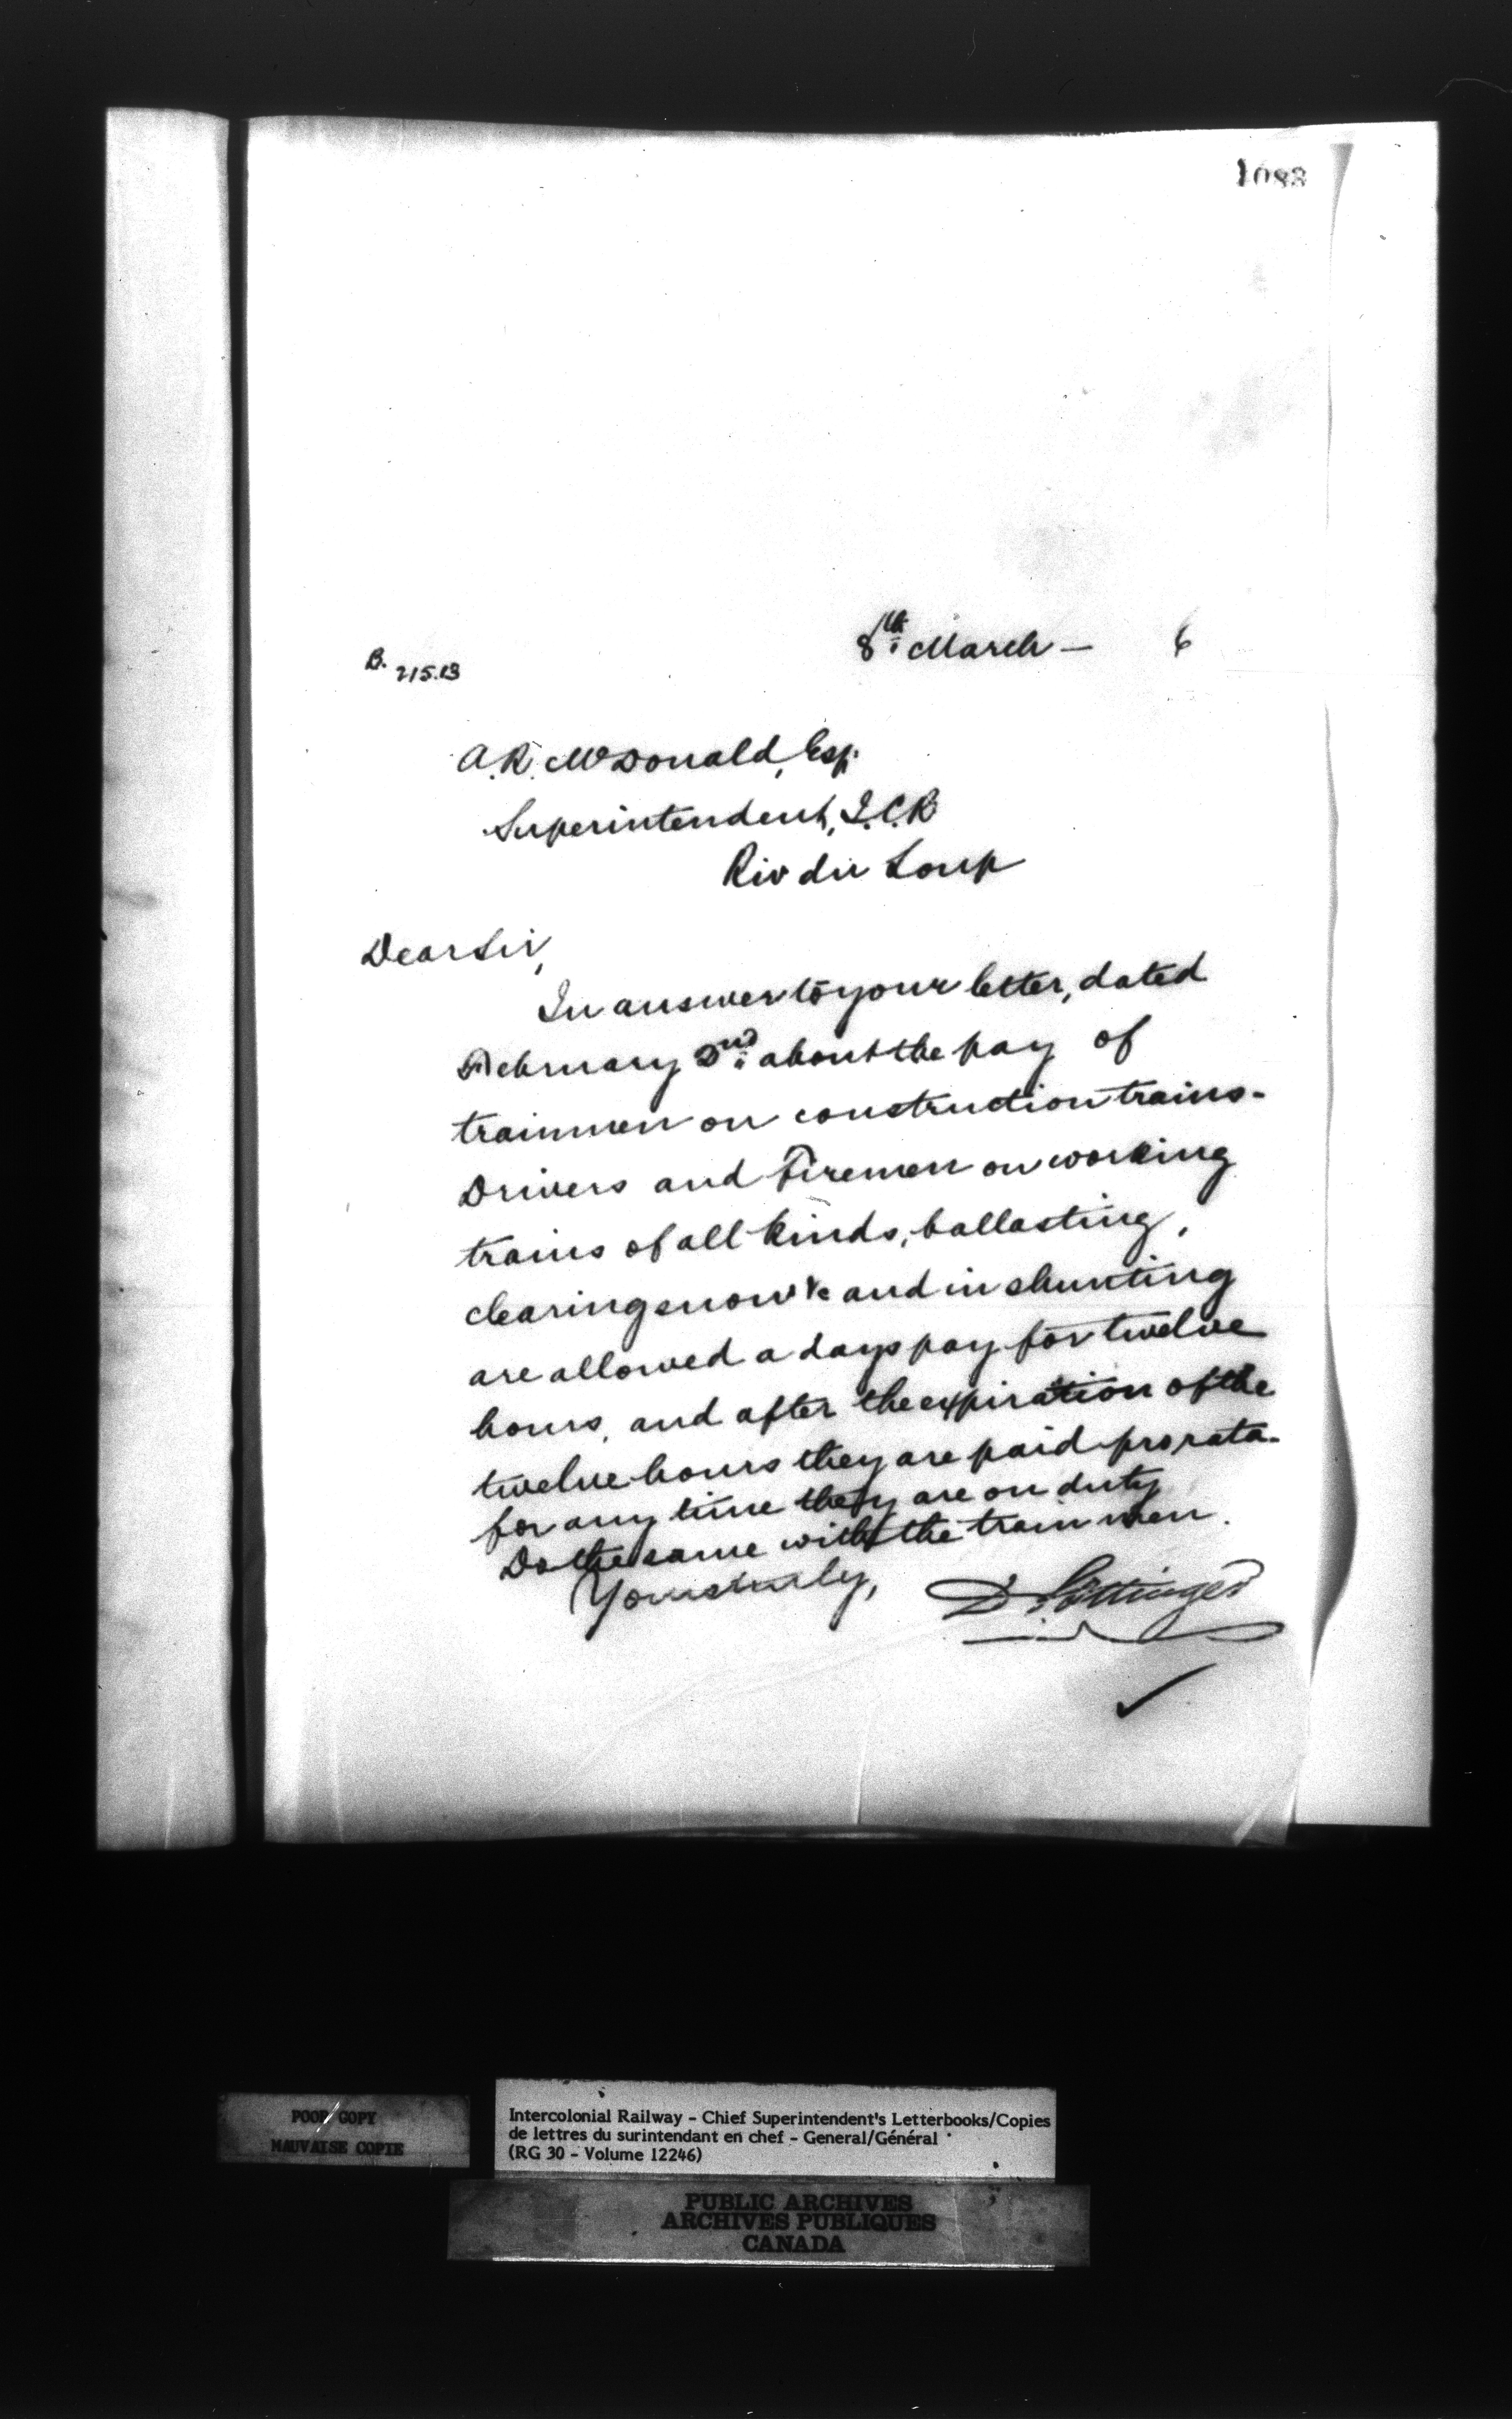 1083
8th March — 6
B. 215.13
A. R. McDonald, Esq.
Superintendent, I.C.R
Riv du Loup
Dear Sir,
In answer to your letter, dated
February 2nd about the pay of
trainmen on construction trains.
Drivers and Firemen on working
trains of all kinds, ballasting,
clearing snow &c and in shunting
are allowed a days pay for twelve
hours, and after the expiration of the
twelve hours they are paid pro rata
for any time they are on duty
Do the same with the train men.
Yours truly,
D Pottinger
POOR COPY
MAUVAISE COPIE
Intercolonial Railway - Chief Superintendent's Letterbooks/Copies
de lettres du surintendant en chef - General/Général
(RG 30 - Volume 12246)
PUBLIC ARCHIVES
ARCHIVES PUBLIQUES
CANADA